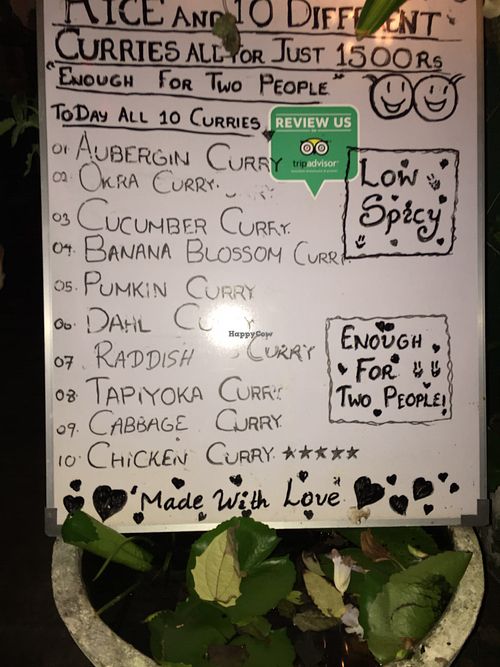 RICE AND 10 DIFFERENT
CURRIES ALL FOR JUST 1500RS
"ENOUGH FOR TWO PEOPLE"
TODAY ALL 10 CURRIES
REVIEW US
ON
tripadvisor
01 AUBERGIN CURRY
02 OKRA CURRY.
LOW
SPICY
03 CUCUMBER CURRY.
04. BANANA BLOSSOM CURRY.
05. PUMKIN CURRY
06. DAHL CURRY
HappyCow
07. RADDISH CURRY
08. TAPIYOKA CURRY
09. CABBAGE CURRY
10. CHICKEN CURRY. ★★★★★
ENOUGH
FOR
TWO PEOPLE!
"MADE WITH LOVE"